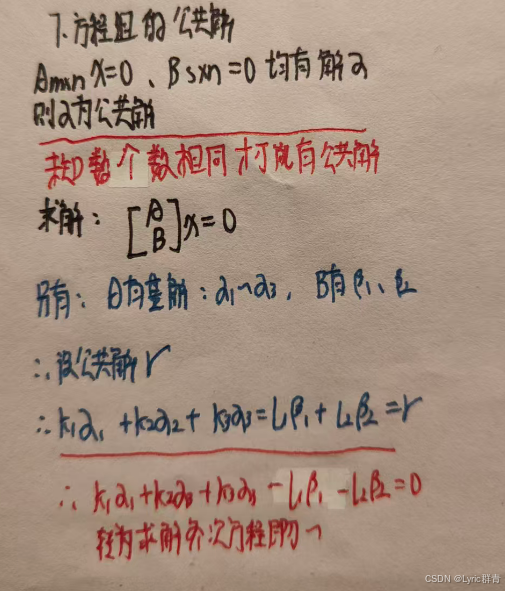 7.方程组的公共解
Amxn x=0、Bsxn=0 均有解α
则α为公共解
未知数个数相同才可能有公共解
求解： [A B]x=0
另有：A有基解：α₁~α₃，B有β₁、β₂
∴设公共解r
∴k₁α₁+k₂α₂+k₃α₃=L₁β₁+L₂β₂=r
∴k₁α₁+k₂α₂+k₃α₃-L₁β₁-L₂β₂=0
转为求解齐次方程即可
CSDN @Lyric群青